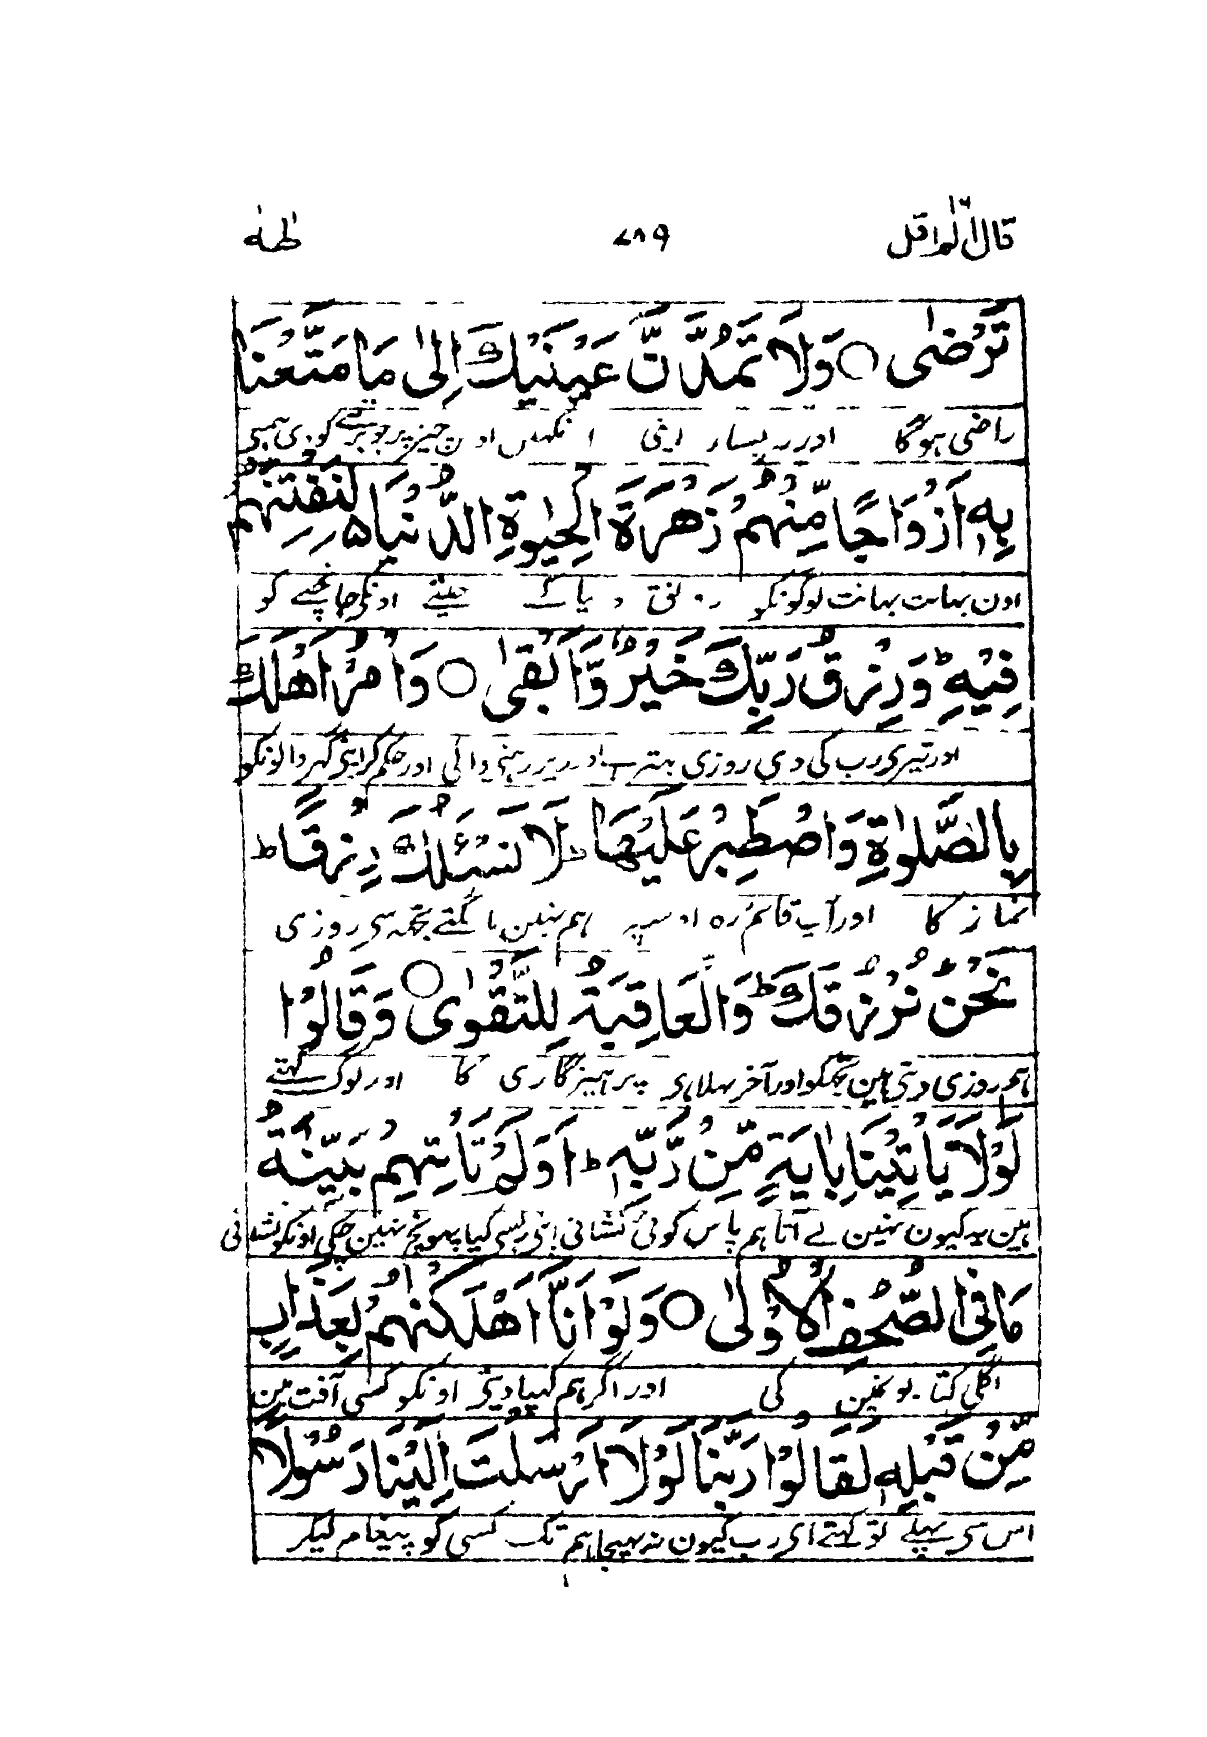 قال الم ١٦ ٧٨٩ طٰهٰ
تَرْضٰى ○ وَلَا تَمُدَّنَّ عَيْنَيْكَ اِلٰى مَا مَتَّعْنَا
راضی ہوگا اور نہ پسار اپنی آنکھیں اون چیز پر جو برتنے کو دی ہمنی
بِهٖٓ اَزْوَاجًا مِّنْهُمْ زَهْرَةَ الْحَيٰوةِ الدُّنْيَا ۵ لِنَفْتِنَهُمْ
اون بہانت بہانت لوگونکو رونق دنیا کے جیتے اونکی جانچنے کو
فِيْهِ ؕ وَرِزْقُ رَبِّكَ خَيْرٌ وَّاَبْقٰى ○ وَاْمُرْ اَهْلَكَ
اور تیری رب کی دی روزی بہتر ہے اور دیر رہنی والی اور حکم کر اپنی گہر والونکو
بِالصَّلٰوةِ وَاصْطَبِرْ عَلَيْهَا ؕ لَا نَسْـَٔلُكَ رِزْقًا ؕ
نماز کا اور آپ قائم رہ اوسپر ہم نہین مانگتے تجہہ سی روزی
نَحْنُ نَرْزُقُكَ ؕ وَالْعَاقِبَةُ لِلتَّقْوٰى ○ وَقَالُوْا
ہم روزی دیتی ہین تجکو اور آخر بہلا ہی پرہیزگاری کا اور لوگ کہتے
لَوْلَا يَاْتِيْنَا بِاٰيَةٍ مِّنْ رَّبِّهٖ ؕ اَوَلَمْ تَاْتِهِمْ بَيِّنَةُ
ہین یہ کیون نہین لے آتا ہم پاس کوئی نشانی اپنی رب سی کیا پہونچ نہین چکی اونکو نشانی
مَا فِي الصُّحُفِ الْاُوْلٰى ○ وَلَوْ اَنَّا اَهْلَكْنٰهُمْ بِعَذَابٍ
اگلی کتابونمین کی اور اگر ہم کہپا دیتی اونکو کسی آفت مین
مِّنْ قَبْلِهٖ لَقَالُوْا رَبَّنَا لَوْلَآ اَرْسَلْتَ اِلَيْنَا رَسُوْلًا
اس سی پہلے تو کہتے ای رب کیون نہ بہیجا ہم تک کسی کو پیغام لیکر